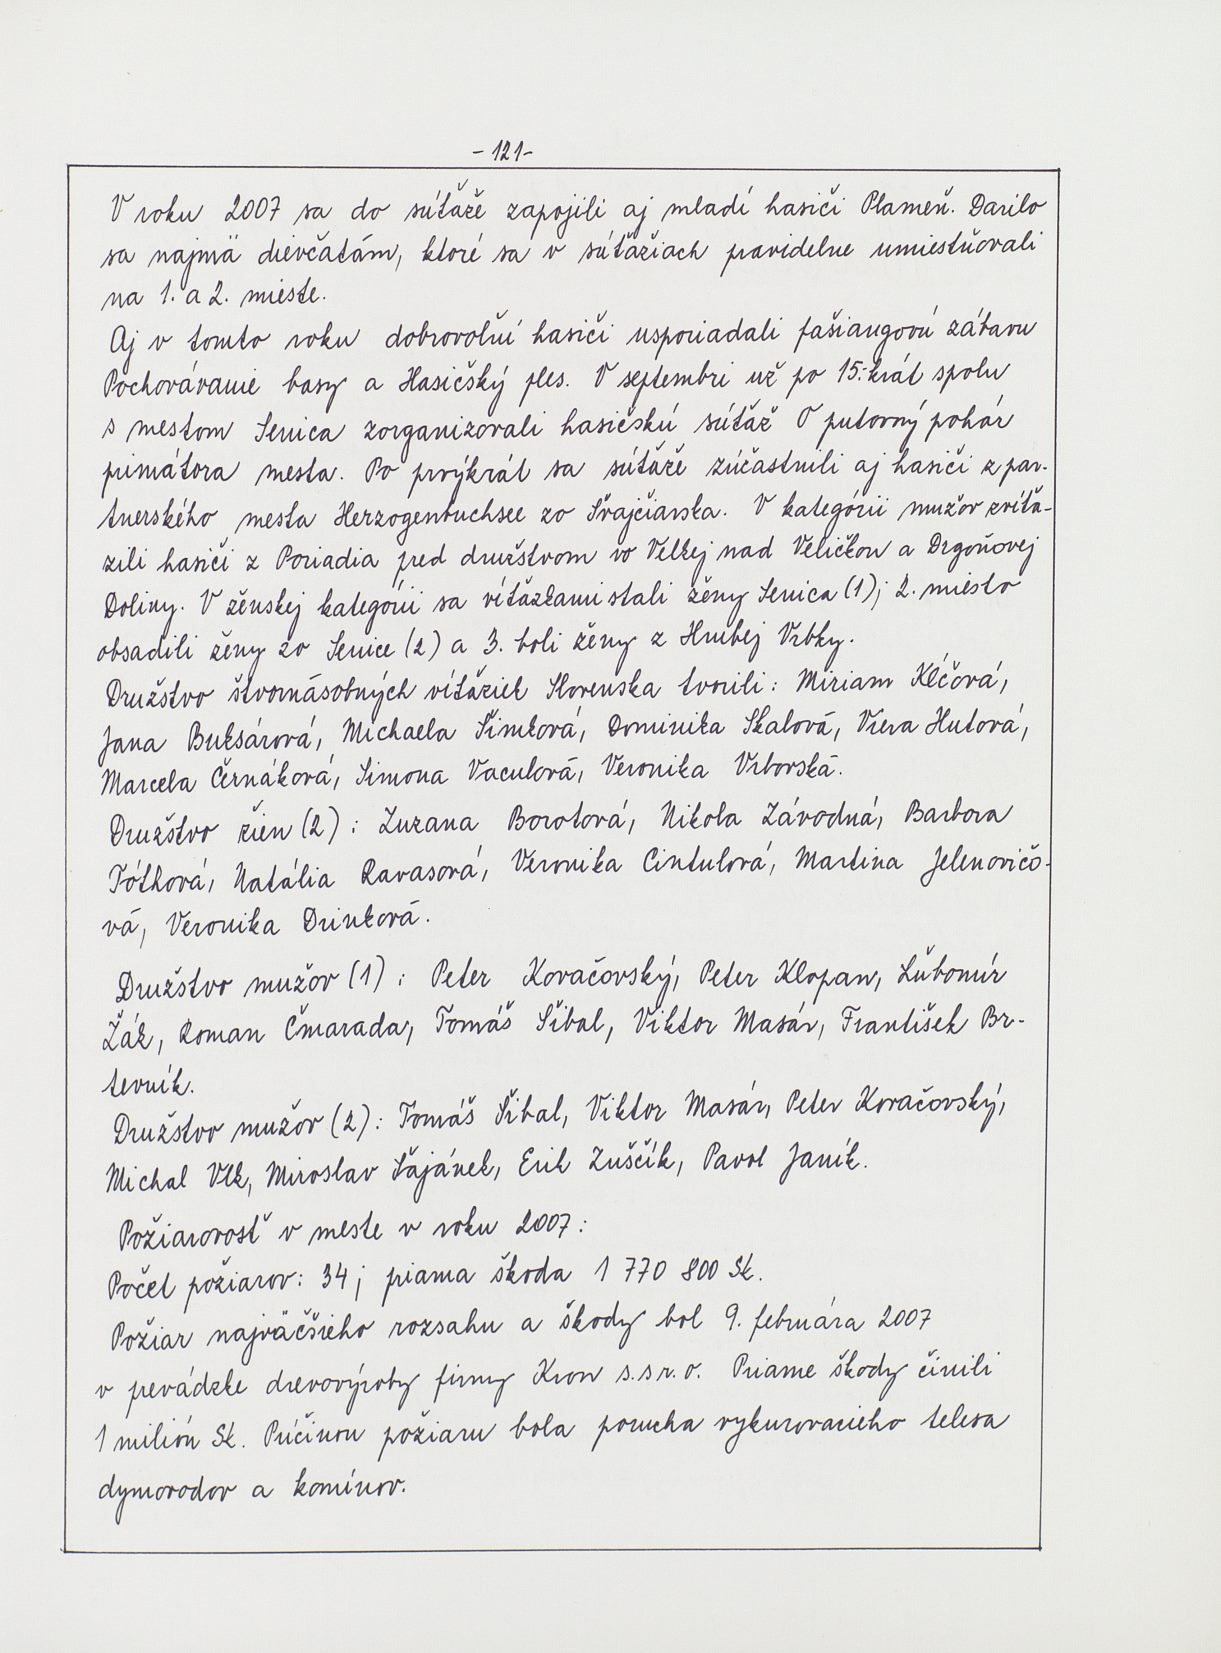 - 121 -
V roku 2007 sa do súťaže zapojili aj mladí hasiči Plameň. Darilo
sa najmä dievčatám, ktoré sa v súťažiach pravidelne umiestňovali
na 1. a 2. mieste.
Aj v tomto roku dobrovoľní hasiči usporiadali fašiangovú zábavu
Pochovávanie basy a Hasičský ples. V septembri už po 15.-krát spolu
s mestom Senica zorganizovali hasičskú súťaž O putovný pohár
primátora mesta. Po prvýkrát sa súťaže zúčastnili aj hasiči z par-
tnerského mesta Herzogenbuchsee zo Švajčiarska. V kategórii mužov zvíťa-
zili hasiči z Poriadia pred družstvom vo Veľkej nad Veličkou a Drgoňovej
Doliny. V ženskej kategórii sa víťazkami stali ženy Senica (1); 2. miesto
obsadili ženy zo Senice (2) a 3. boli ženy z Hrubej Vrbky.
Družstvo štvornásobných víťaziek Slovenska tvorili: Miriam Klčová,
Jana Buksárová, Michaela Šimková, Dominika Skalová, Viera Hutová,
Marcela Černáková, Simona Vaculová, Veronika Vrborská.
Družstvo žien (2): Zuzana Borotová, Nikola Závodná, Barbora
Tóthová, Natália Ravasová, Veronika Cintulová, Martina Jelenovičo-
vá, Veronika Drinková.
Družstvo mužov (1): Peter Kovačovský, Peter Klopan, Ľubomír
Žák, Roman Čmarada, Tomáš Šibal, Viktor Masár, František Br-
tevník.
Družstvo mužov (2): Tomáš Šibal, Viktor Masár, Peter Kovačovský,
Michal Vlk, Miroslav Šajánek, Erik Zuščík, Pavol Janík.
Požiarovosť v meste v roku 2007:
Počet požiarov: 34; priama škoda 1 770 800 Sk.
Požiar najväčšieho rozsahu a škody bol 9. februára 2007
v prevádzke drevovýroby firmy Kron s.s r. o. Priame škody činili
1 milión Sk. Príčinou požiaru bola porucha vykurovacieho telesa
dymovodov a komínov.